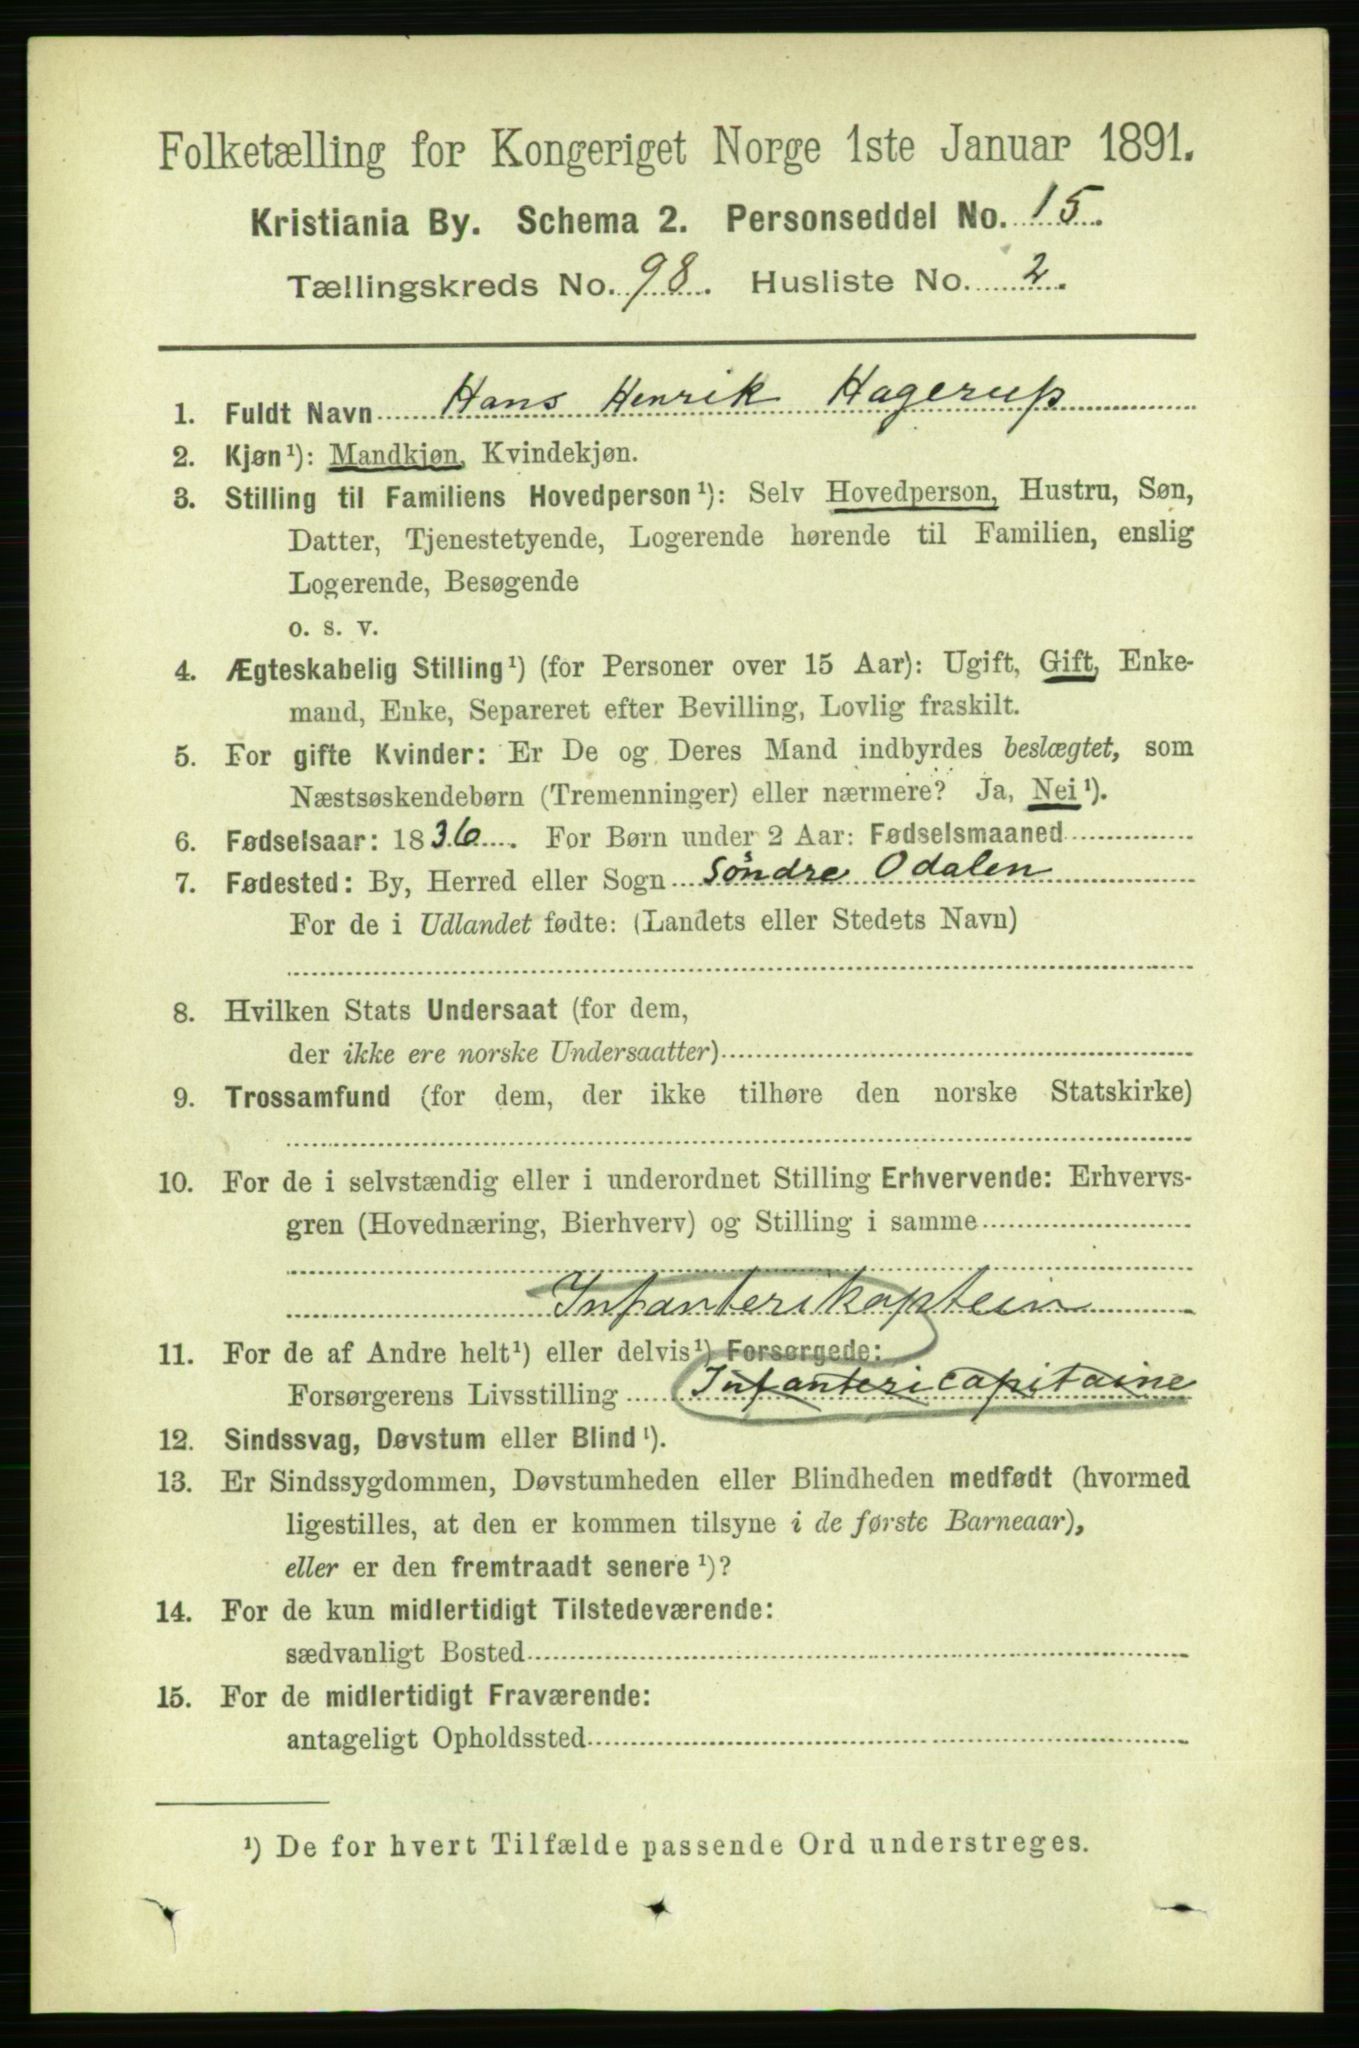 Folketælling for Kongeriget Norge 1ste Januar 1891.
Kristiania By. Schema 2. Personseddel No. 15.
Tællingskreds No. 98. Husliste No. 2.
1. Fuldt Navn Hans Henrik Hagerup
2. Kjøn¹): Mandkjøn, Kvindekjøn.
3. Stilling til Familiens Hovedperson¹): Selv Hovedperson, Hustru, Søn,
Datter, Tjenestetyende, Logerende hørende til Familien, enslig
Logerende, Besøgende
o. s. v.
4. Ægteskabelig Stilling¹) (for Personer over 15 Aar): Ugift, Gift, Enke-
mand, Enke, Separeret efter Bevilling, Lovlig fraskilt.
5. For gifte Kvinder: Er De og Deres Mand indbyrdes beslægtet, som
Næstsøskendebørn (Tremenninger) eller nærmere? Ja, Nei¹).
6. Fødselsaar: 1836. For Børn under 2 Aar: Fødselsmaaned
7. Fødested: By, Herred eller Sogn Søndre Odalen
For de i Udlandet fødte: (Landets eller Stedets Navn)
8. Hvilken Stats Undersaat (for dem,
der ikke ere norske Undersaatter)
9. Trossamfund (for dem, der ikke tilhøre den norske Statskirke)
10. For de i selvstændig eller i underordnet Stilling Erhvervende: Erhvervs-
gren (Hovednæring, Bierhverv) og Stilling i samme
Infanterikaptein
11. For de af Andre helt¹) eller delvis¹) Forsørgede:
Forsørgerens Livsstilling Infantericapitaine
12. Sindssvag, Døvstum eller Blind¹).
13. Er Sindssygdommen, Døvstumheden eller Blindheden medfødt (hvormed
ligestilles, at den er kommen tilsyne i de første Barneaar),
eller er den fremtraadt senere¹)?
14. For de kun midlertidigt Tilstedeværende:
sædvanligt Bosted
15. For de midlertidigt Fraværende:
antageligt Opholdssted
¹) De for hvert Tilfælde passende Ord understreges.